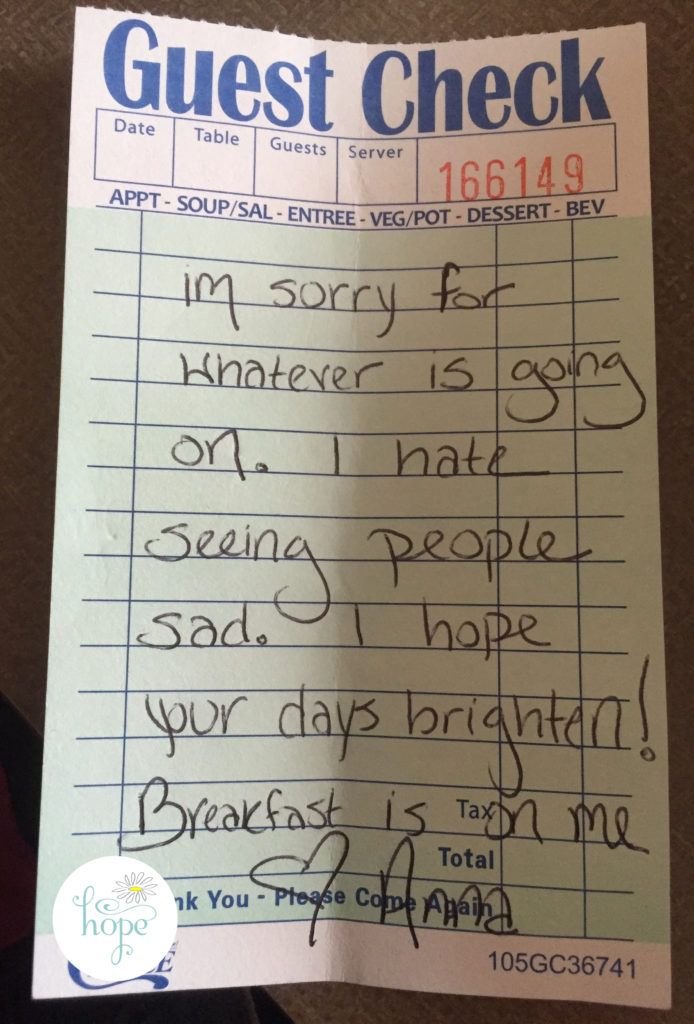 Guest Check
Date Table Guests Server
166149
APPT - SOUP/SAL - ENTREE - VEG/POT - DESSERT - BEV
im sorry for
whatever is going
on. I hate
seeing people
sad. I hope
your days brighten!
Breakfast is on me
Tax
Total
Anna
Please Come Again
You -
hope
105GC36741